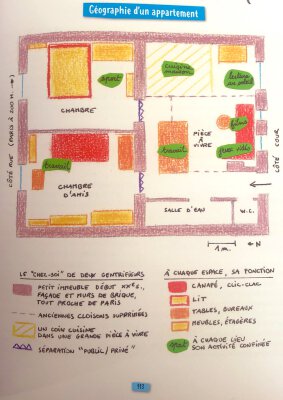 Géographie d'un appartement
sport
cuisine
maison
lecture
au soleil
CHAMBRE
CÔTÉ RUE (PARIS À 200 M →)
films
PIÈCE
À
VIVRE
travail
jeux vidéo
travail
CHAMBRE
D'AMIS
CÔTÉ COUR
SALLE D'EAU
W.C.
1 m
N
LE "CHEZ-SOI" DE DEUX GENTRIFIEURS
PETIT IMMEUBLE DÉBUT XXe S.,
FAÇADE ET MURS DE BRIQUE,
TOUT PROCHE DE PARIS
ANCIENNES CLOISONS SUPPRIMÉES
UN COIN CUISINE
DANS UNE GRANDE PIÈCE À VIVRE
SÉPARATION "PUBLIC/PRIVÉ"
À CHAQUE ESPACE, SA FONCTION
CANAPÉ, CLIC-CLAC
LIT
TABLES, BUREAUX
MEUBLES, ÉTAGÈRES
sport
À CHAQUE LIEU
SON ACTIVITÉ CONFINÉE
113